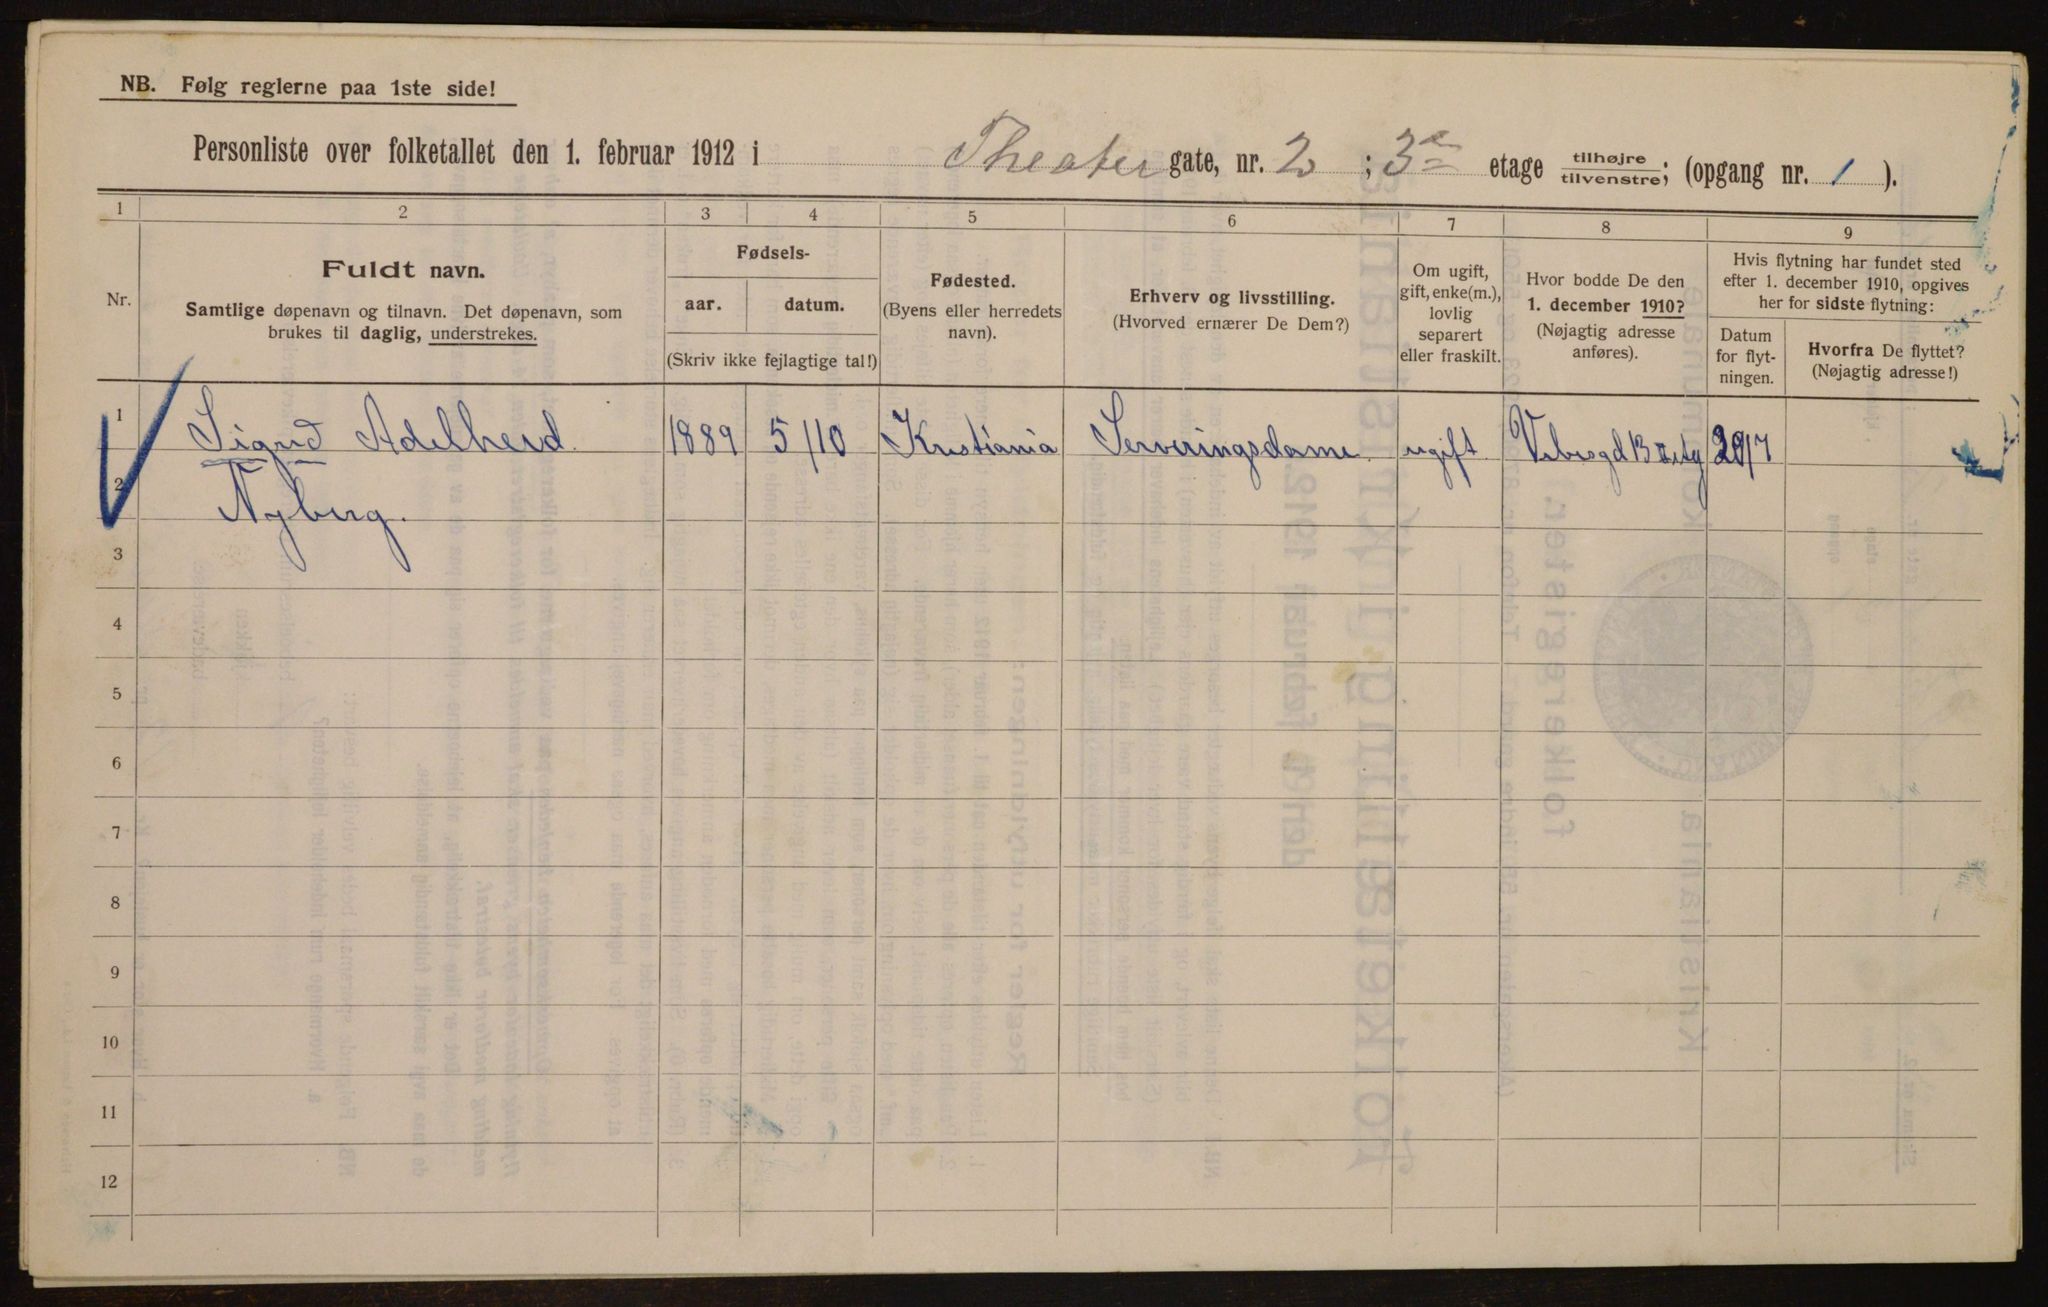 NB. Følg reglerne paa 1ste side!
Personliste over folketallet den 1. februar 1912 i Theater gate, nr. 2 ; 3 etage tilhøjre/tilvenstre; (opgang nr. 1 ).
1 2 3 4 5 6 7 8 9
Nr.
Fuldt navn.
Samtlige døpenavn og tilnavn. Det døpenavn, som
brukes til daglig, understrekes.
Fødsels-
aar. datum.
(Skriv ikke fejlagtige tal!)
Fødested.
(Byens eller herredets
navn).
Erhverv og livsstilling.
(Hvorved ernærer De Dem?)
Om ugift,
gift, enke(m.),
lovlig
separert
eller fraskilt.
Hvor bodde De den
1. december 1910?
(Nøjagtig adresse
anføres).
Hvis flytning har fundet sted
efter 1. december 1910, opgives
her for sidste flytning:
Datum
for flyt-
ningen.
Hvorfra De flyttet?
(Nøjagtig adresse!)
1 Sigrid Adelheid 1889 5/10 Kristiania Serveringsdame ugift 13
2 Nyberg.
3
4
5
6
7
8
9
10
11
12